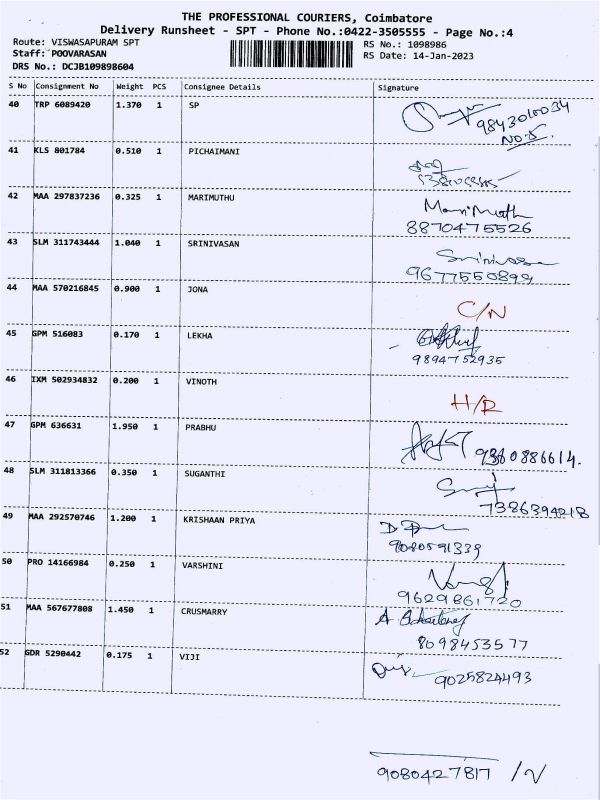 THE PROFESSIONAL COURIERS, Coimbatore
Delivery Runsheet - SPT - Phone No.:0422-3505555 - Page No.:4
Route: VISWASAPURAM SPT RS No.: 1098986
Staff: POOVARASAN RS Date: 14-Jan-2023
DRS No.: DCJB109898604
S No Consignment No Weight PCS Consignee Details Signature
40 TRP 6089420 1.370 1 SP
9843010034
No.5.
41 KLS 801784 0.510 1 PICHAIMANI
42 MAA 297837236 0.325 1 MARIMUTHU Marimuth
8870475526
43 SLM 311743444 1.040 1 SRINIVASAN Srinivasan
9677550899
44 MAA 570216845 0.900 1 JONA
C/N
45 GPM 516083 0.170 1 LEKHA
9894752935
46 IXM 502934832 0.200 1 VINOTH
H/R
47 GPM 636631 1.950 1 PRABHU
9360886614.
48 SLM 311813366 0.350 1 SUGANTHI
7386394218
49 MAA 292570746 1.200 1 KRISHAAN PRIYA
9080591339
50 PRO 14166984 0.250 1 VARSHINI
9629861720
51 MAA 567677808 1.450 1 CRUSMARRY
8098453577
52 GDR 5290442 0.175 1 VIJI
9025824493
9080427817 /N